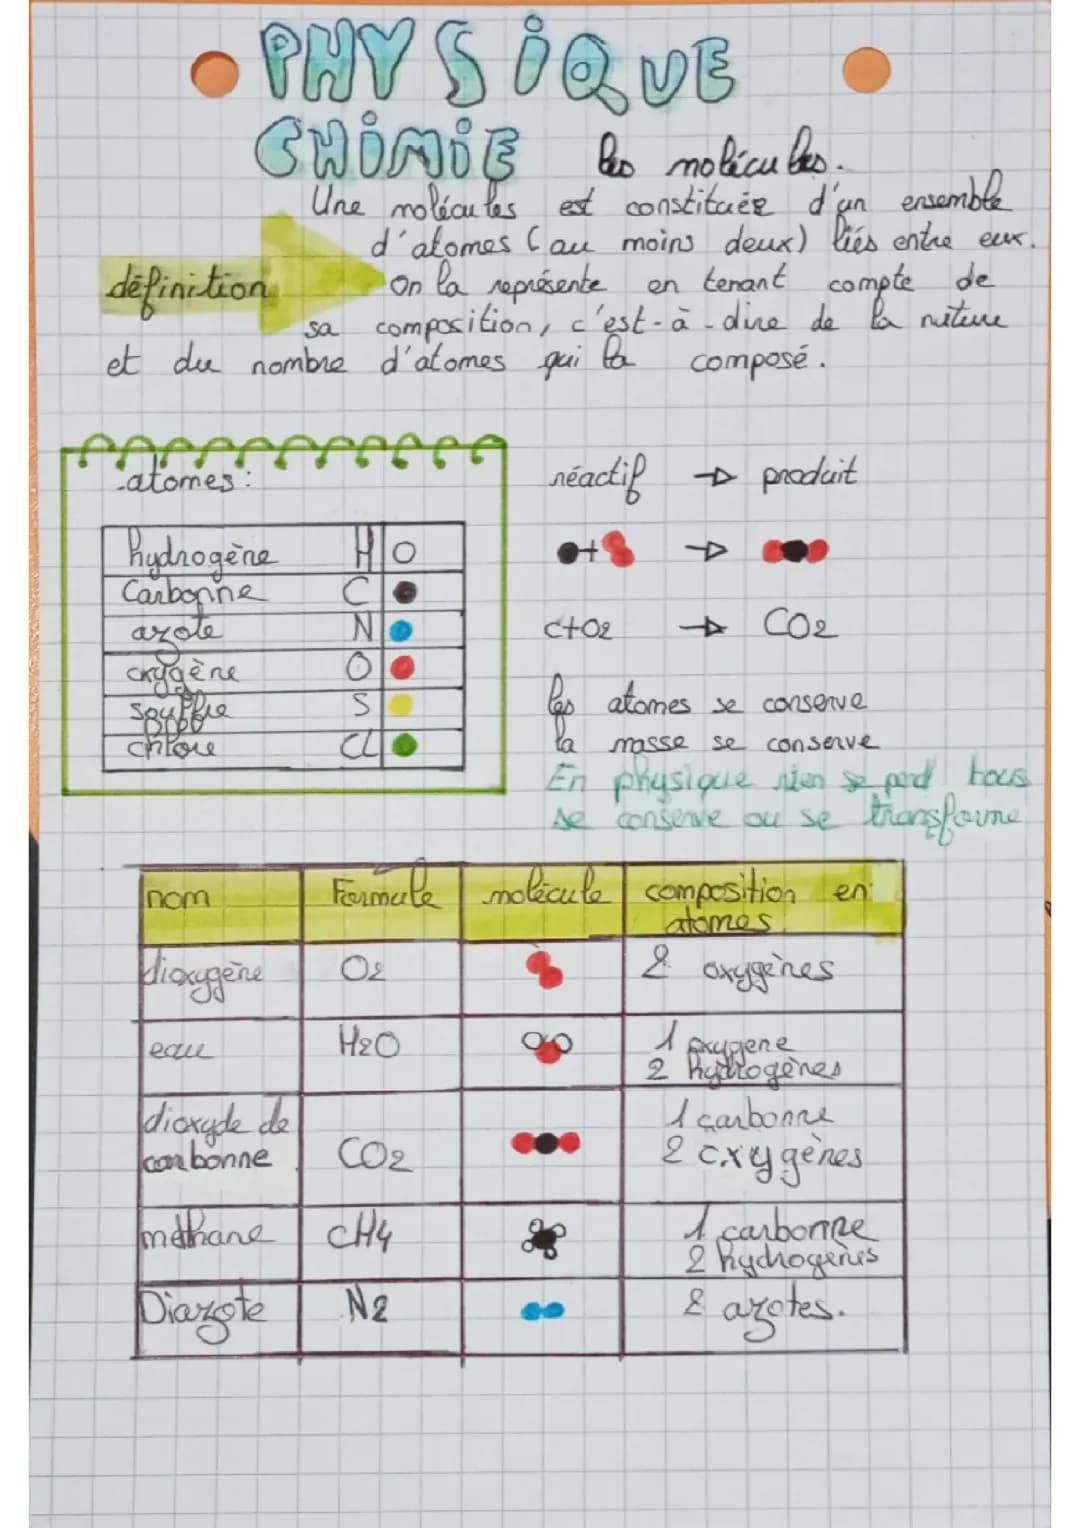 PHYSiQUE
CHiMiE les molécules.
Une molécules est constituée d'un ensemble
d'atomes (au moins deux) liés entre eux.
définition
On la représente en tenant compte de
sa composition, c'est-à-dire de la nature
et du nombre d'atomes qui la composé.
atomes :
hydrogène H
Carbonne C
azote N
oxygène O
souffre S
chlore CL
réactif → produit
+ →
C+O2 → CO2
les atomes se conserve
la masse se conserve
En physique rien se perd tous
se conserve ou se transforme
nom Formule molécule composition en
atomes.
dioxygène O2 2 oxygènes
eau H2O 1 oxygene
2 hydrogènes
dioxyde de
carbonne CO2 1 carbonne
2 oxygènes
méthane CH4 1 carbonne
2 hydrogènes
Diazote N2 2 azotes.